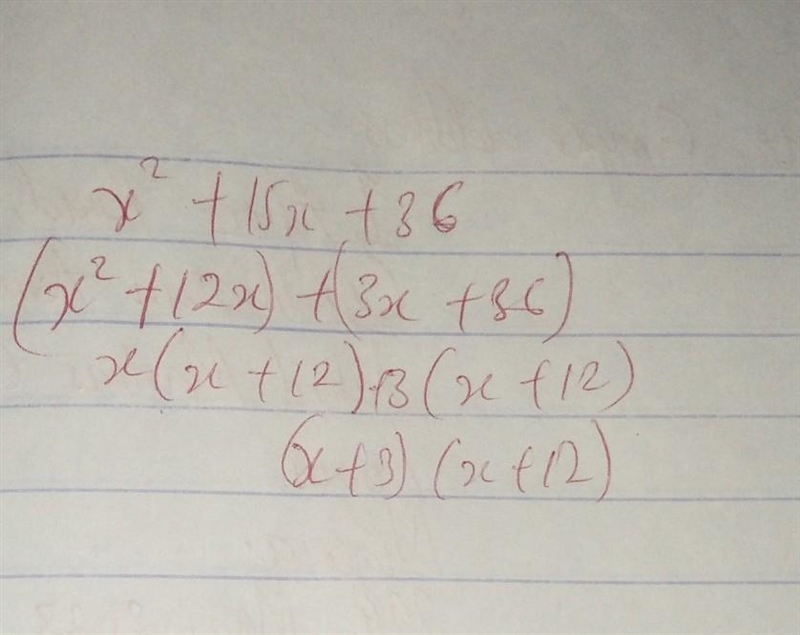 x² + 15x + 36
(x² + 12x) + (3x + 36)
x(x + 12) + 3(x + 12)
(x + 3) (x + 12)